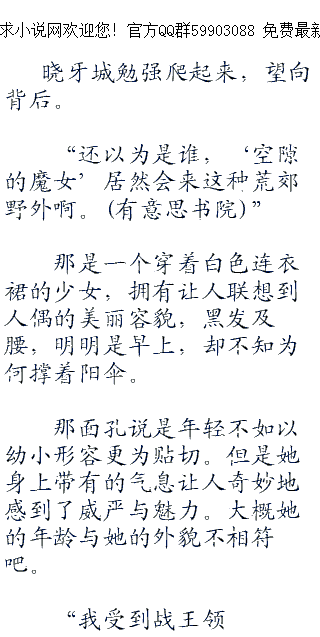 求小说网欢迎您！官方QQ群59903088 免费最新
晓牙城勉强爬起来，望向
背后。
“还以为是谁，‘空隙
的魔女’居然会来这种荒郊
野外啊。(有意思书院)”
那是一个穿着白色连衣
裙的少女，拥有让人联想到
人偶的美丽容貌，黑发及
腰，明明是早上，却不知为
何撑着阳伞。
那面孔说是年轻不如以
幼小形容更为贴切。但是她
身上带有的气息让人奇妙地
感到了威严与魅力。大概她
的年龄与她的外貌不相符
吧。
“我受到战王领